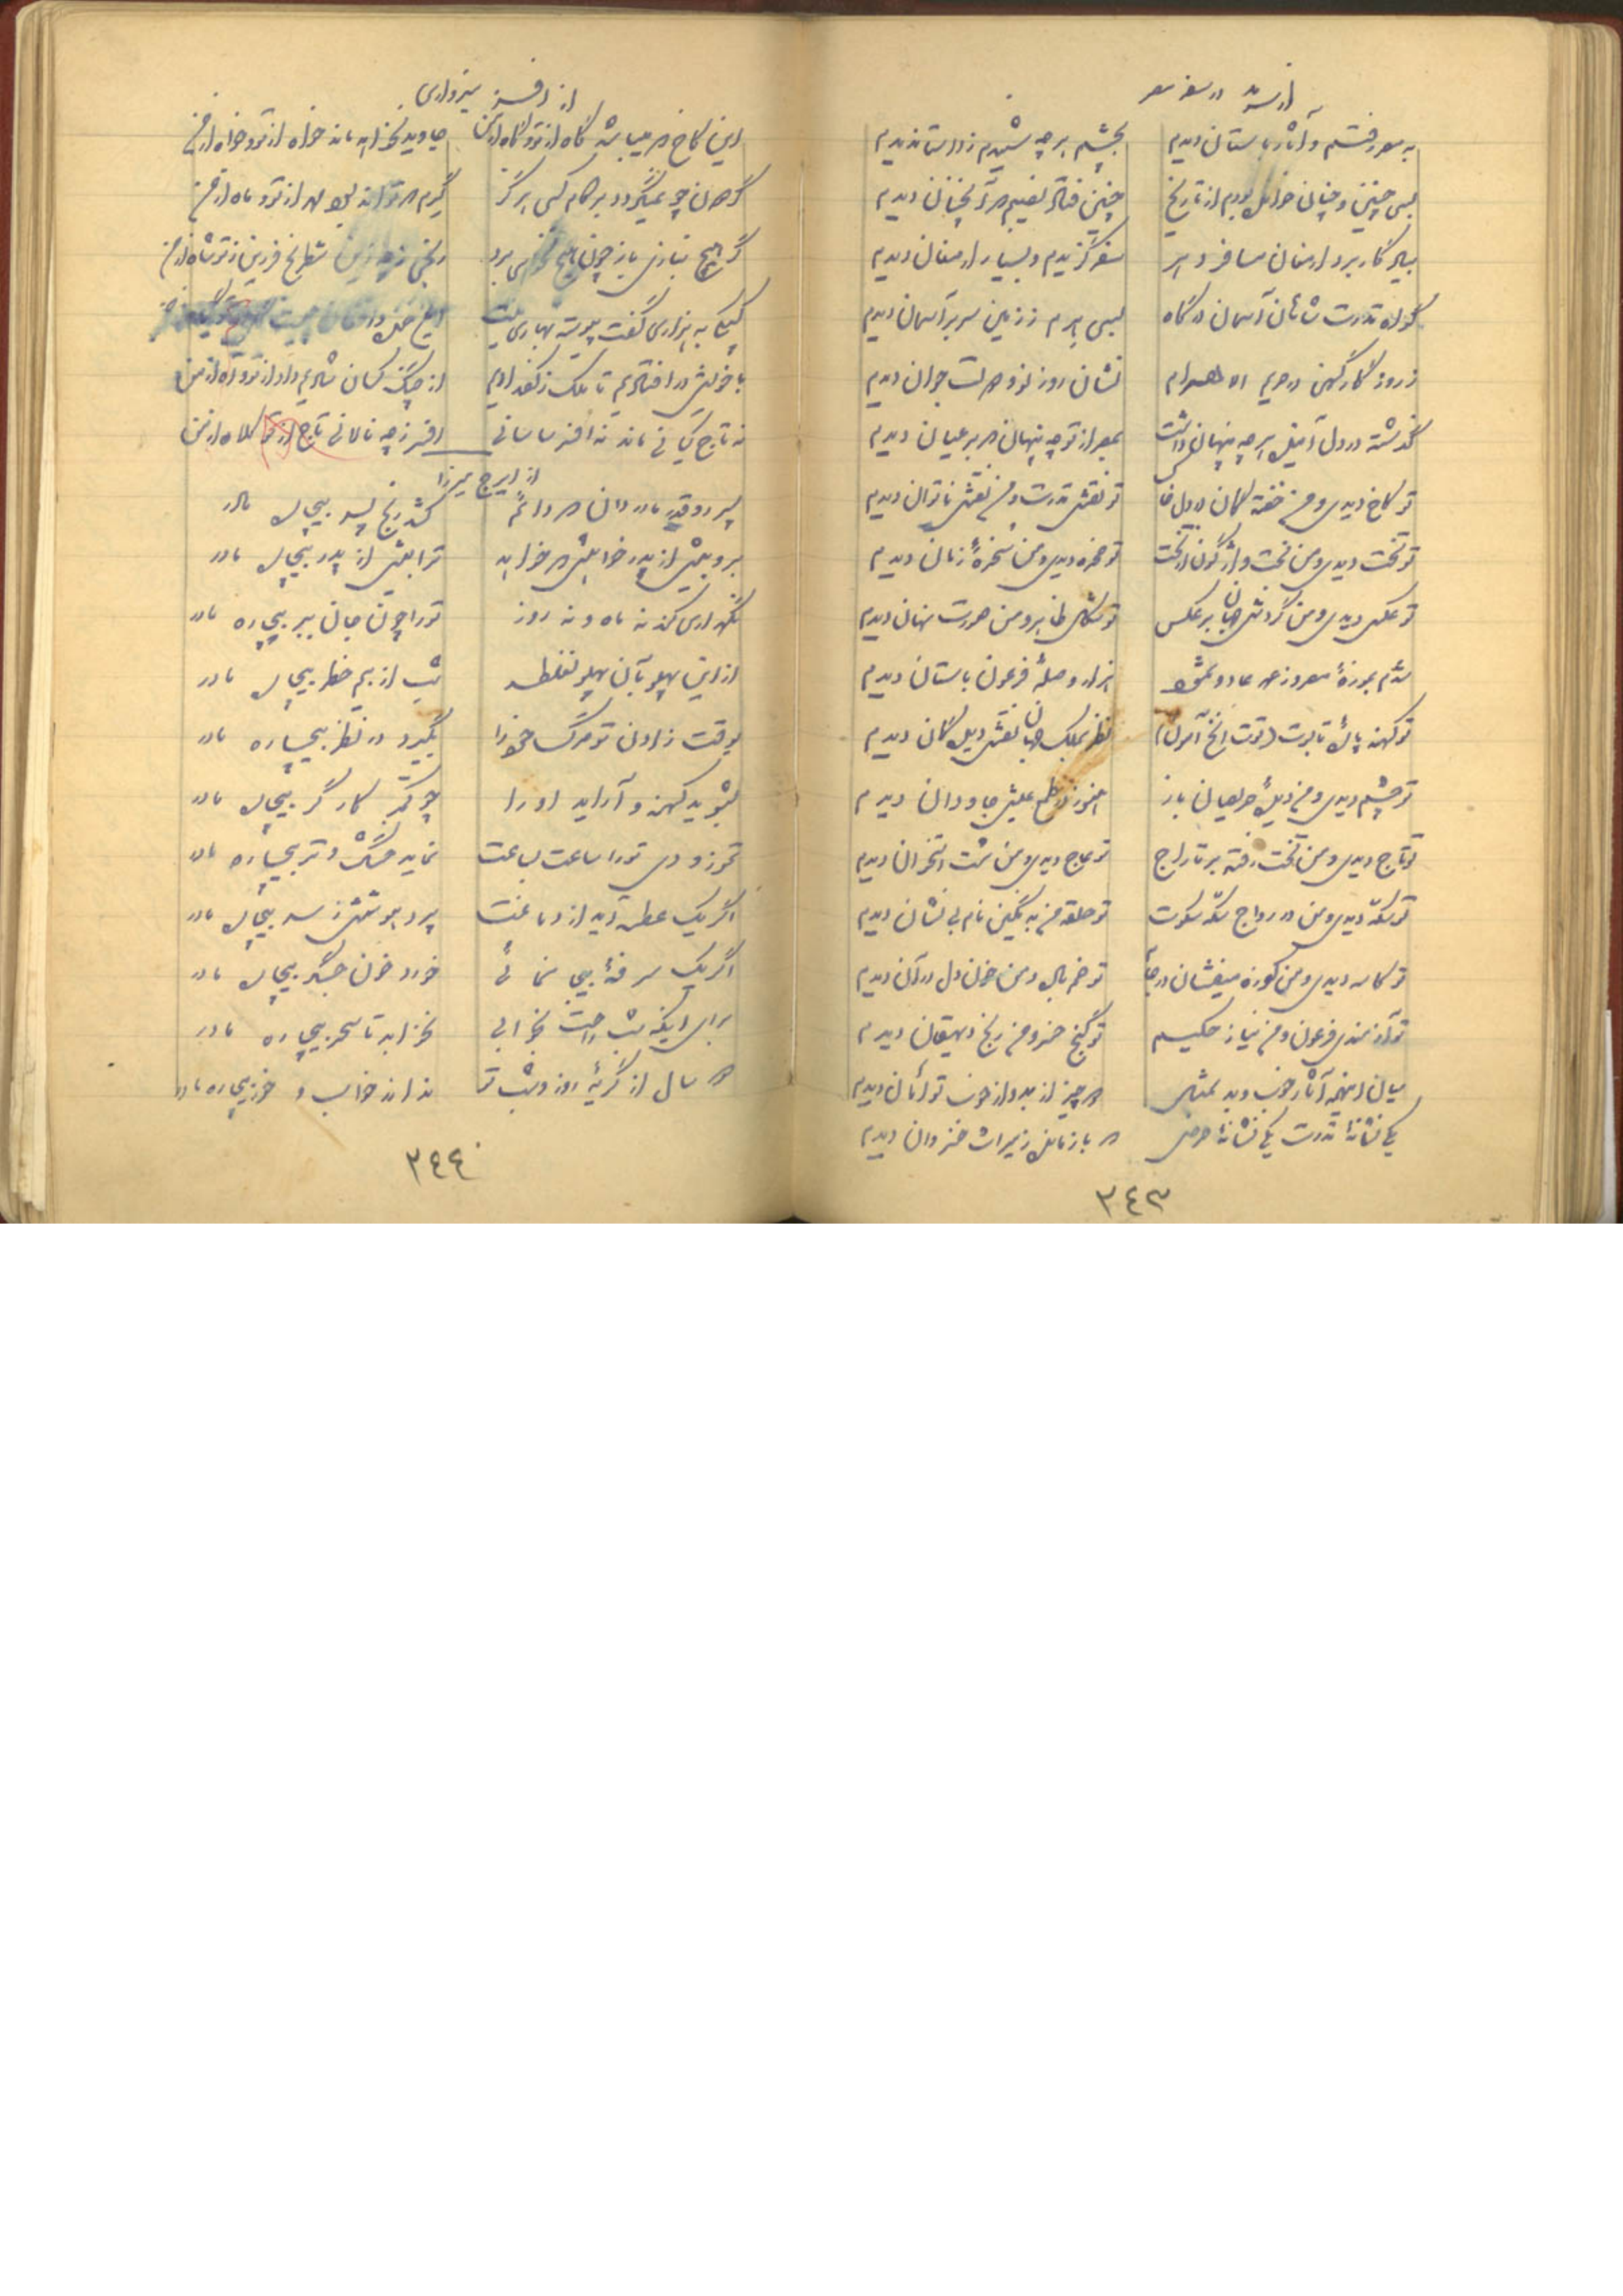 از سرمد در سفر مصر
به مصر رفتم و آثار باستان دیدم بچشم هرچه شنیدم ز داستان دیدم
بسی چنین و چنان خوانده بودم از تاریخ چنین فتاد نصیبم که آنچنان دیدم
بیادگار برد ارمغان مسافر و من سفر گزیدم و بسیار ارمغان دیدم
گواه قدرت شاهان آسمان درگاه بسی هرم ز زمین سر بر آسمان دیدم
ز روزگار کهن در حریم الاهرام نشان روز نو و دولت جوان دیدم
گذشته در دل آینده هرچه پنهان داشت بمصر از تو چه پنهان که بر عیان دیدم
تو کاخ دیدی و من خفتگان در دل خاک تو نقش قدرت و من نعش ناتوان دیدم
تو تخت دیدی و من بخت واژگون از تخت تو صخره دیدی و من سخره زمان دیدم
تو عکس دیدی و من گردش جهان برعکس تو شکل ظاهر و من صورت نهان دیدم
شدم بموزه مصر و ز عهد عاد و ثمود هزار وصله فرعون باستان دیدم
تو کهنه پاره تابوت (توت انخ آمون)
تو چشم دیدی و من دیده حریصان باز هنوز در طمع عیش جاودان دیدم
تو تاج دیدی و من تخت رفته بر تاراج تو عاج دیدی و من مشت استخوان دیدم
تو سکه دیدی و من در رواج سکه سکوت تو حلقه من به نگین نام بی نشان دیدم
تو کاسه دیدی و من کوزه
تو آزمندی فرعون و من نیاز حکیم تو گنج خسرو من رنج دهقان دیدم
میان اینهمه آثار خوب و بد بمثل دو چیز از بد و از خوب توأمان دیدم
یکی نشانه قدرت یکی نشانه حرص که بازمانده ز میراث خسروان دیدم
٣٤٣
از افسر سبزواری
این کاخ که میباشد گاه از تو و گاه از من جاوید نخواهد ماند خواه از تو و خواه از من
گردون چو نمیگردد بر کام کسی هرگز گیرم که تواند بود مهر از تو و ماه از من
گر هیچ نبازی باز چون هیچ نخواهی برد رنجی شطرنج فرزین ز تو شاه از من
با خویش در افتادیم تا ملک ز کف دادیم از جنگ کسان شادیم داد از تو و آه از من
نه تاج کیانی ماند نه افسر ساسانی افسر ز چه نالانی تاج از تو کلاه از من
از ایرج میرزا
پسر رو قدر مادر دان که دائم کشد رنج پسر بیچاره مادر
برو بیش از پدر خواهش که خواهد ترا بیش از پدر بیچاره مادر
نگهداری کند نه ماه و نه روز تو را چون جان ببر بیچاره مادر
از این پهلو بآن پهلو نغلطد شب از بیم خطر بیچاره مادر
بوقت زادن تو مرگ خود را بگیرد در نظر بیچاره مادر
بشوید کهنه و آراید او را چو کمتر کارگر بیچاره مادر
تموز و دی تو را ساعت بساعت نماید خشک و تر بیچاره مادر
اگر یک عطسه آید از دماغت پرد هوشش ز سر بیچاره مادر
اگر یک سرفه بیجا نمائی خورد خون جگر بیچاره مادر
برای اینکه شب راحت بخوابی نخوابد تا سحر بیچاره مادر
دو سال از گریه روز و شب تو نداند خواب و خور بیچاره مادر
٣٤٤